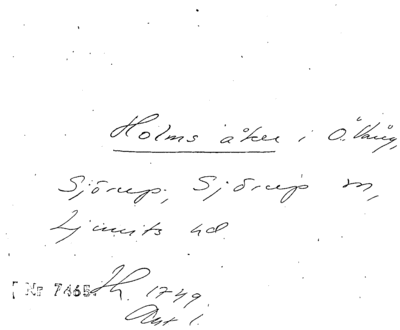 Holms åker i Ö. Vång,
Sjörup, Sjörup sn,
Ljunits hd
Nr 7465 Th. 1749.
Akt 1.